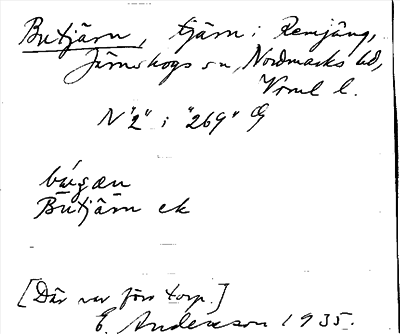 Butjärn, tjärn i Remjäng,
Järnskogs sn, Nordmarks hd,
Vrml l.
N "2" i "269"
Butjärn ek
[Där var förr torp.]
E. Anderson 1935.